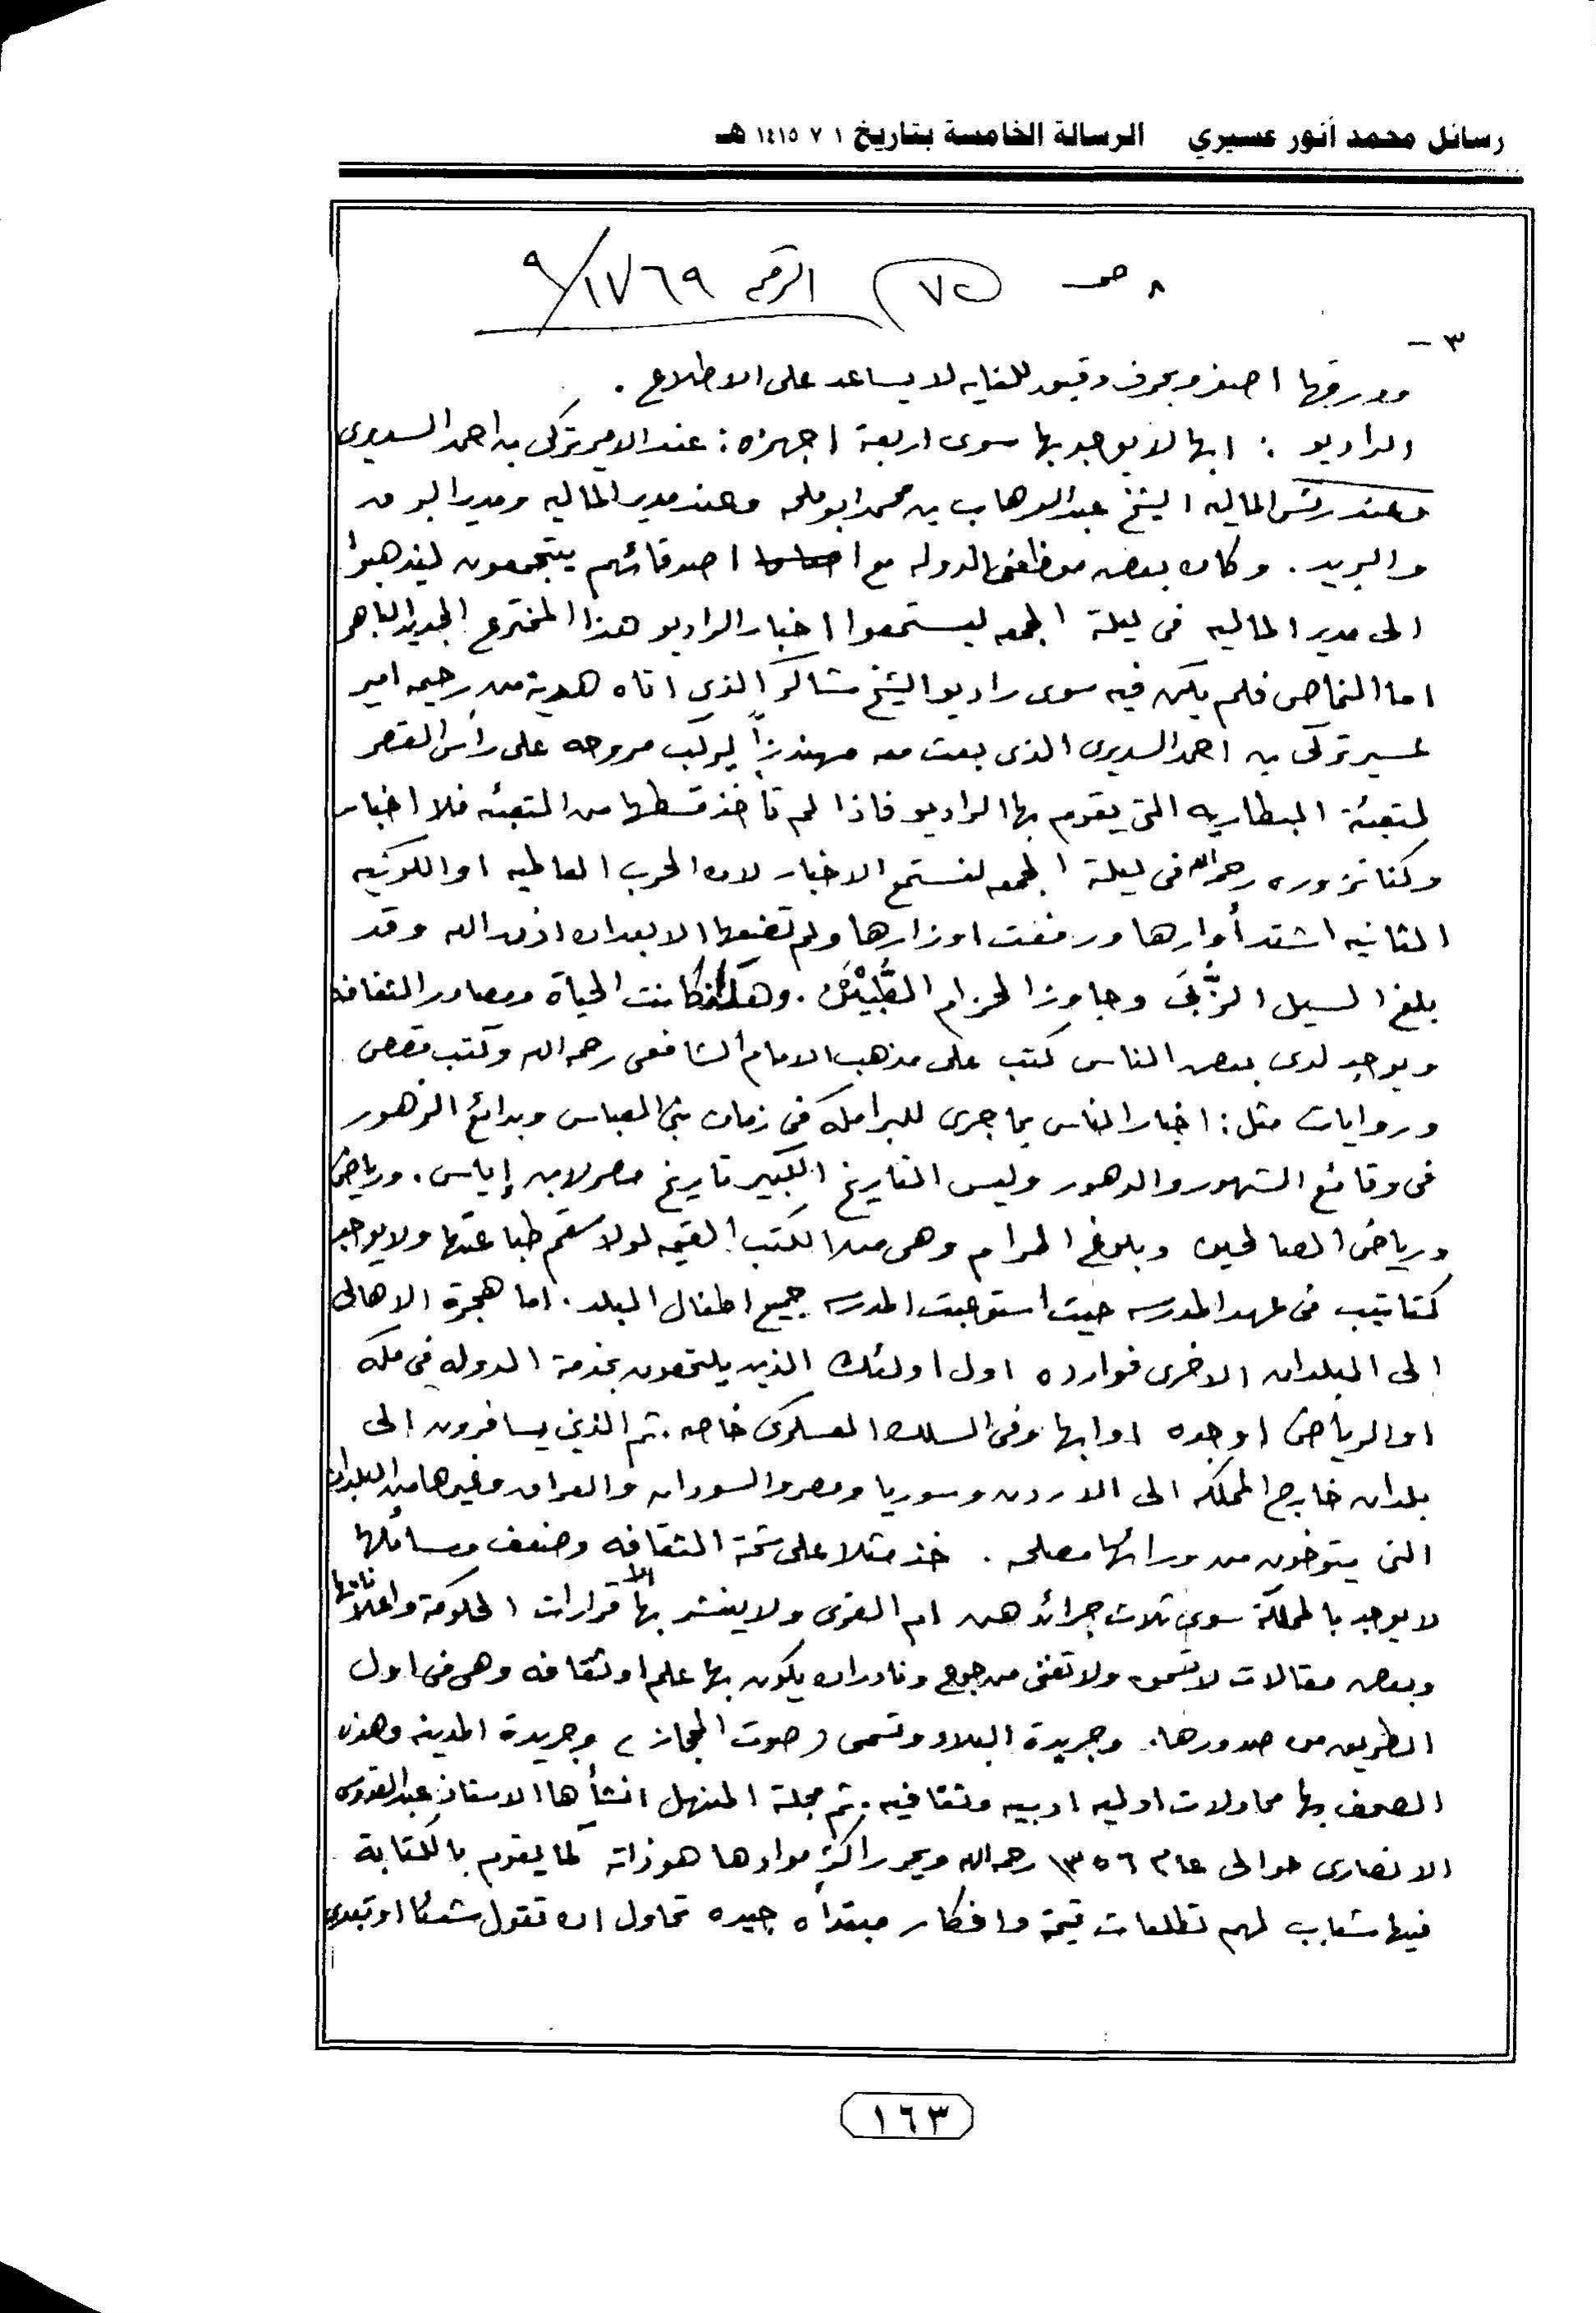 رسائل محمد أنور عسيري الرسالة الخامسة بتاريخ ١ ٧ ١٤١٥ هـ
٨ صـ ٧٥ الرقم ٩/١٧٦٩
٣ –
وورقها اصفر وبحروف دقيقه للغايه لا يساعد على الاطلاع .
الراديو : ابها لا يوجد بها سوى اربعة اجهزه : عند الامير تركى بن احمد السديرى
وعند رئيس الماليه الشيخ عبد الوهاب بن محمد ابو ملحه وعند مدير الماليه ومدير البرق
والبريد . وكان بعض موظفى الدوله مع اصدقائهم يتجمعون ليذهبوا
الى مدير الماليه فى ليلة الجمعه ليستمعوا اخبار الراديو هذا المخترع الجديد الباهر
اما النماص فلم يكن فيه سوى راديو الشيخ شاكر الذي اتاه هدية من رحيمه امير
عسير تركى بن احمد السديرى الذى بعث معه مهندزاً ليركب مروحه على رأس القصر
لتعبئة البطاريه التى يقوم بها الراديو فاذا لم تأخذ قسطها من التعبئه فلا اخبار
وكنا نزوره رحمه الله فى ليلة الجمعه لنستمع الاخبار لان الحرب العالميه او الكونيه
الثانيه اشتد أوارها ورفعت اوزارها ولم تضعها الا بعد ان اذن الله وقد
بلغ السيل الزُّبَى وجاوز الحزام الطُّبْيَيْن . وهكذا كانت الحياة ومصادر الثقافه
ويوجد لدى بعض الناس كتب على مذهب الامام الشافعى رحمه الله وكتب قصص
وروايات مثل : اخبار الناس بما جرى للبرامكه فى زمان بنى العباس وبدائع الزهور
فى وقائع الشهور والدهور وليس التاريخ الكبير تاريخ مصر لابن إياس . ورياض
ورياض الصالحين وبلوغ المرام وهى من الكتب القيمه لولا سقم طباعتها ولا يوجد
كتاتيب فى عهد المدرسه حيث استوعبت المدرسه جميع اطفال البلد . اما هجرة الاهالى
الى البلدان الاخرى فوارده اول اولئك الذين يلتحقون بخدمة الدوله فى مكه
او الرياض او جده او ابها وفى السلك العسكرى خاصه . ثم الذين يسافرون الى
بلدان خارج المملكه الى الاردن وسوريا ومصر والسودان والعراق وغيرها من البلدان
التى يتوخون من ورائها مصلحه . خذ مثلا على شحة الثقافه وضعف وسائلها
لا يوجد بالمملكة سوى ثلاث جرائد هى ام القرى ولا ينشر بها الا قرارات الحكومة واعلاناتها
وبعض مقالات لا تسمن ولا تغنى من جوع ونادرا ان يكون بها علم او ثقافه وهى فى اول
الطريق من صدورها . وجريدة البلاد وتسمى ( صوت الحجاز ) وجريدة المدينه وهذه
الصحف بها محاولات اوليه ادبيه وثقافيه . ثم مجلة المنهل انشأها الاستاذ عبد القدوس
الانصارى حوالى عام ١٣٥٦ رحمه الله ويحرر اكثر موادها هو ذاته كما يقوم بالكتابة
فيها شباب لهم تطلعات قيمة وافكار مبتدأه جيده تحاول ان تقول شيئا او تبدى
١٦٣